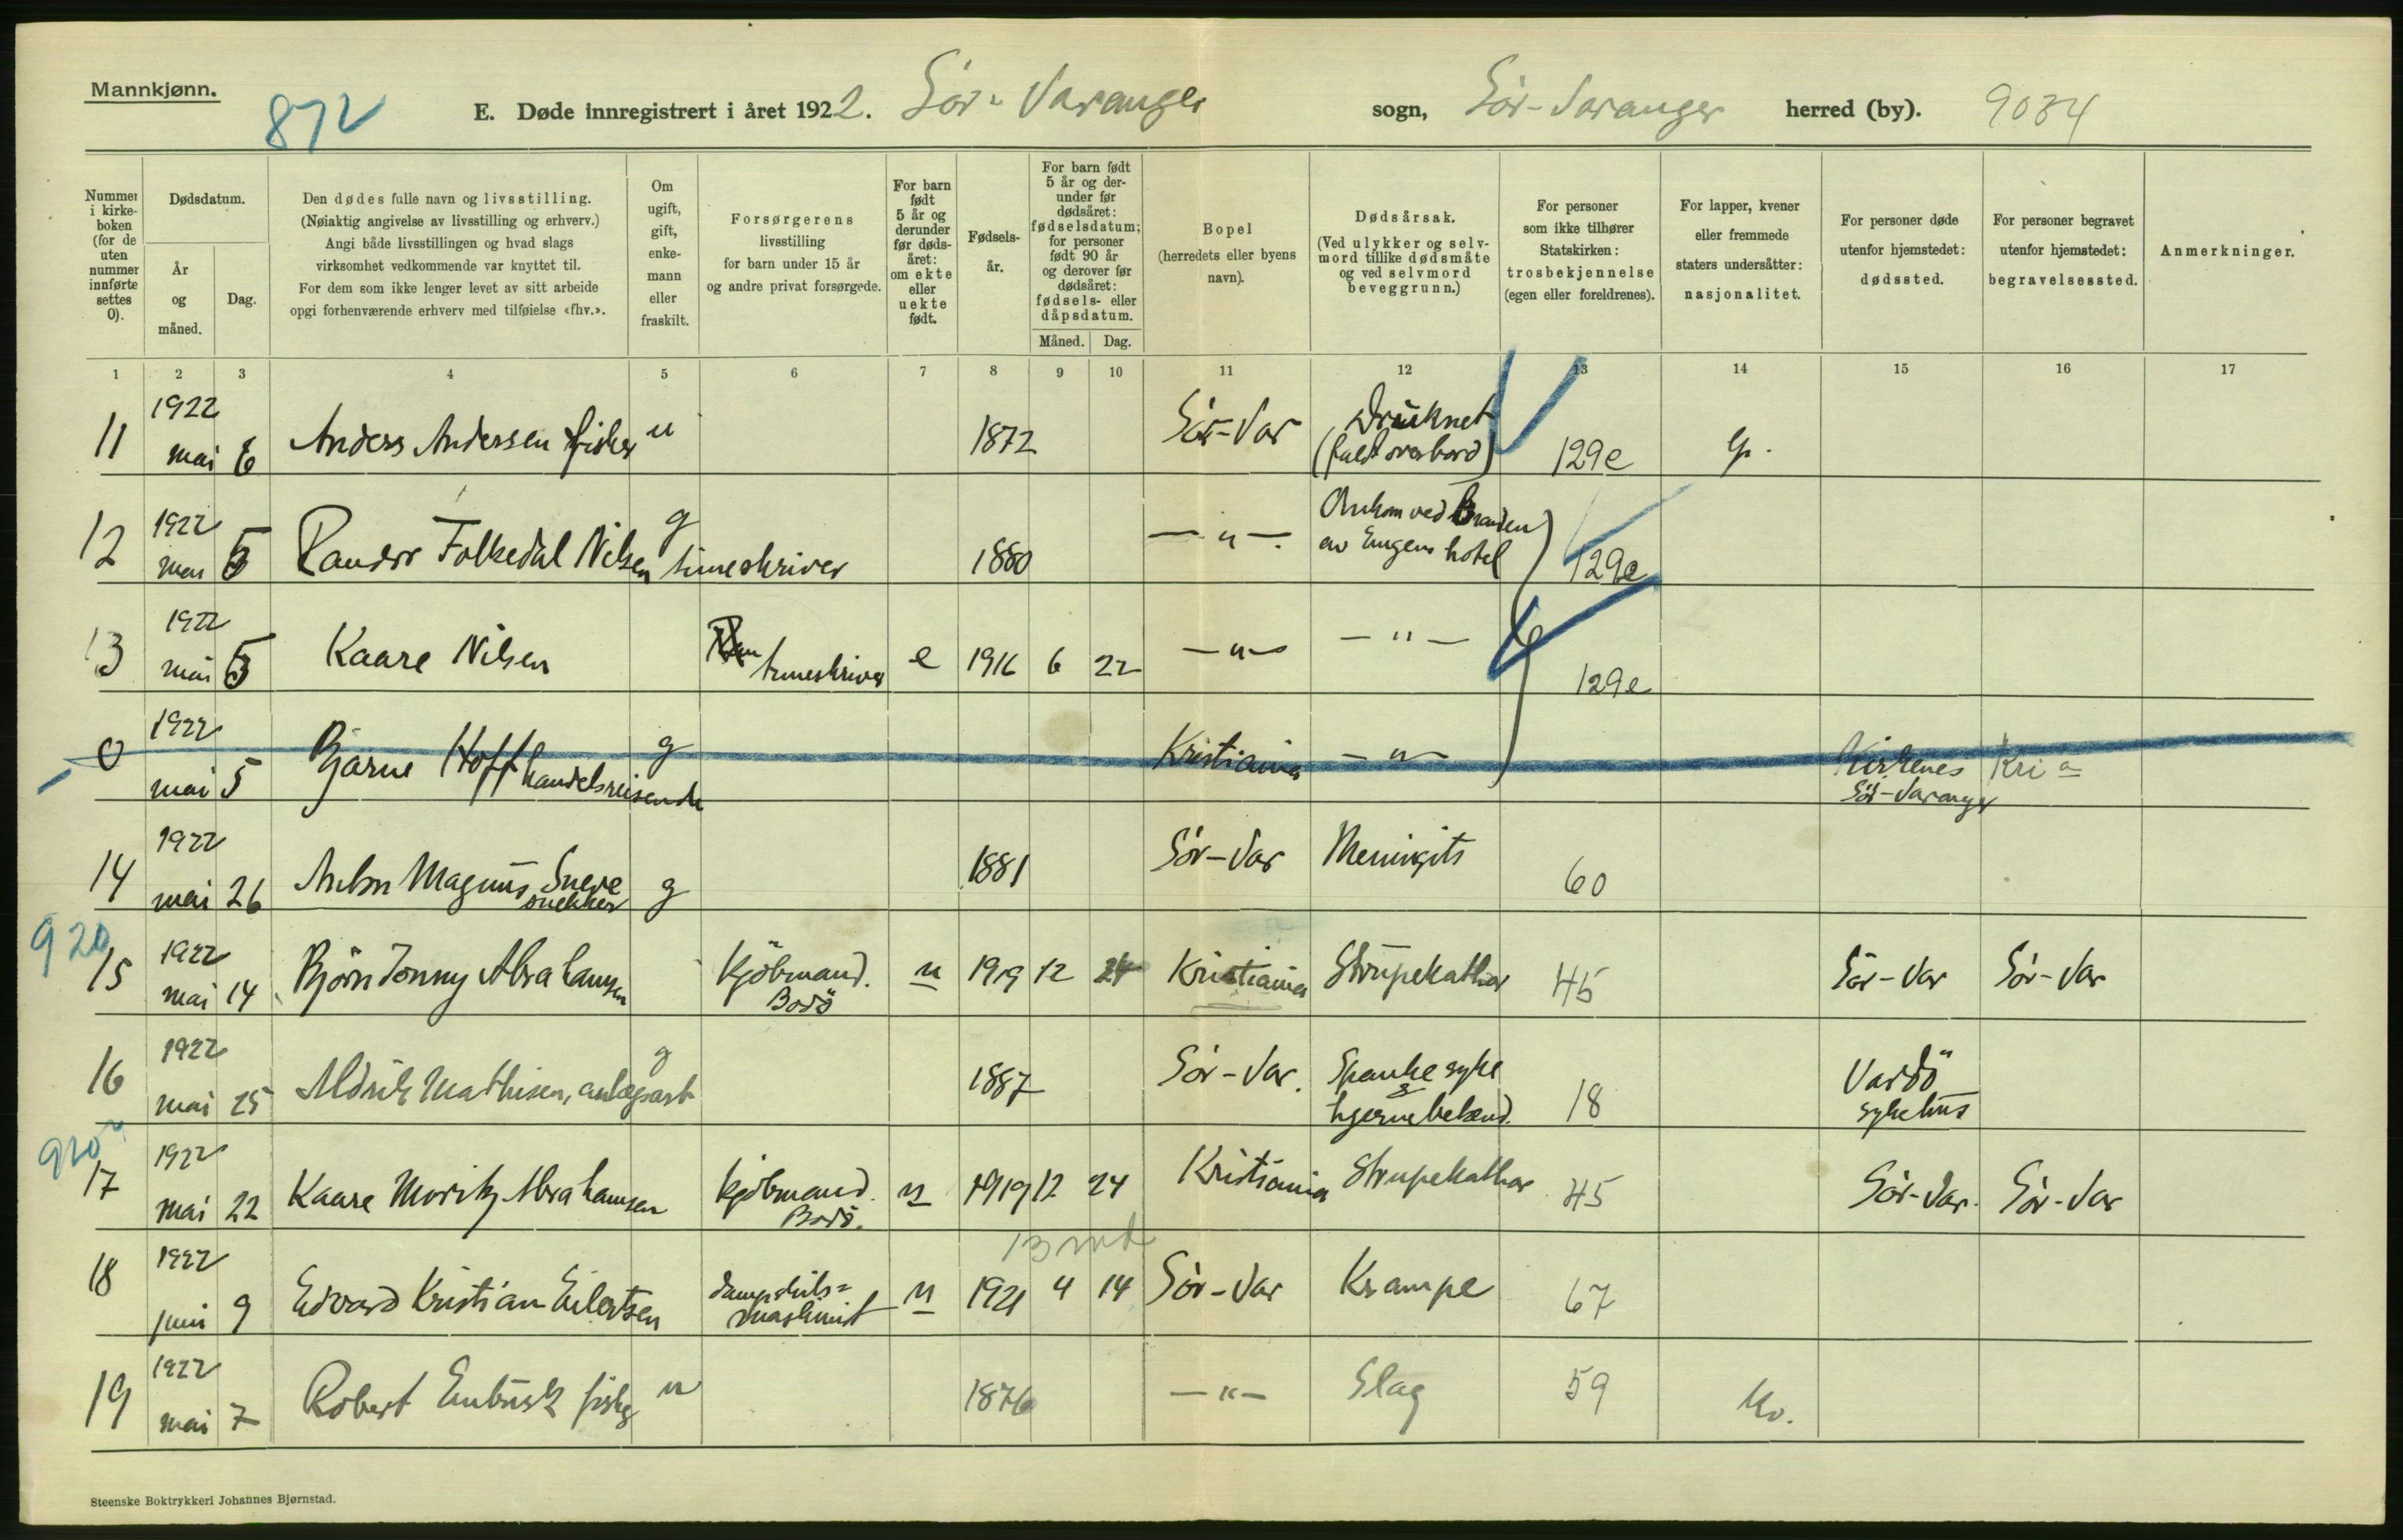 Mannkjønn.
872
E. Døde innregistrert i året 1922. Sör-Varanger sogn, Sör-Varanger herred (by). 9034
Nummer i kirkeboken (for de uten nummer innførte settes 0).
Dødsdatum.
År og måned.
Dag.
Den dødes fulle navn og livsstilling.
(Nøiaktig angivelse av livsstilling og erhverv.)
Angi både livsstillingen og hvad slags
virksomhet vedkommende var knyttet til.
For dem som ikke lenger levet av sitt arbeide
opgi forhenværende erhverv med tilføielse «fhv.».
Om ugift, gift, enkemann eller fraskilt.
Forsørgerens
livsstilling
for barn under 15 år
og andre privat forsørgede.
For barn født 5 år og derunder før dødsåret: om ekte eller uekte født.
Fødselsår.
For barn født 5 år og derunder før dødsåret: fødselsdatum; for personer født 90 år og derover før dødsåret: fødsels- eller dåpsdatum.
Måned. Dag.
Bopel
(herredets eller byens
navn).
Dødsårsak.
(Ved ulykker og selvmord tillike dødsmåte og ved selvmord beveggrunn.)
For personer
som ikke tilhører
Statskirken:
trosbekjennelse
(egen eller foreldrenes).
For lapper, kvener
eller fremmede
staters undersåtter:
nasjonalitet.
For personer døde
utenfor hjemstedet:
dødssted.
For personer begravet
utenfor hjemstedet:
begravelsessted.
Anmerkninger.
1 2 3 4 5 6 7 8 9 10 11 12 13 14 15 16 17
11 1922 mai 6 Anders Andersen fisker u 1872 Sör-Var Druknet (faldt overbord) 129e
12 1922 mai 5 Folkedal Nilsen g timeskriver 1880 — " — Omkom ved Branden av hotel 129e
13 1922 mai 5 Kaare Nilsen timeskriver e 1916 6 22 — " — — " — 129e
0 1922 mai 5 Bjarne Hoff handelsreisende g Kristiania — " — Kirkenes Sör-Varanger Kri a
14 1922 mai 26 Anton Magnus Sneve snekker g 1881 Sör-Var Meningits 60
920
15 1922 mai 14 Björn Jonny Abrahamsen Kjöbmand. Bodö u 1919 12 24 Kristiania Strupekathar 45 Sör-Var Sör-Var
16 1922 mai 25 Aldrik Mathisen, anlægsarb g 1887 Sör-Var. Spanske syke & hjernebetænd. 18 Vardö sykehus
920
17 1922 mai 22 Kaare Moritz Abrahamsen kjöbmand. Bodö. u 1919 12 24 Kristiania Strupekathar 45 Sör-Var. Sör-Var
13 md
18 1922 juni 9 Edvard Kristian Eilertsen dampskibsmaskinist u 1921 4 14 Sör-Var Krampe 67
19 1922 mai 7 Robert fisker u 1876 — " — Slag 59 kv.
Steenske Boktrykkeri Johannes Bjørnstad.